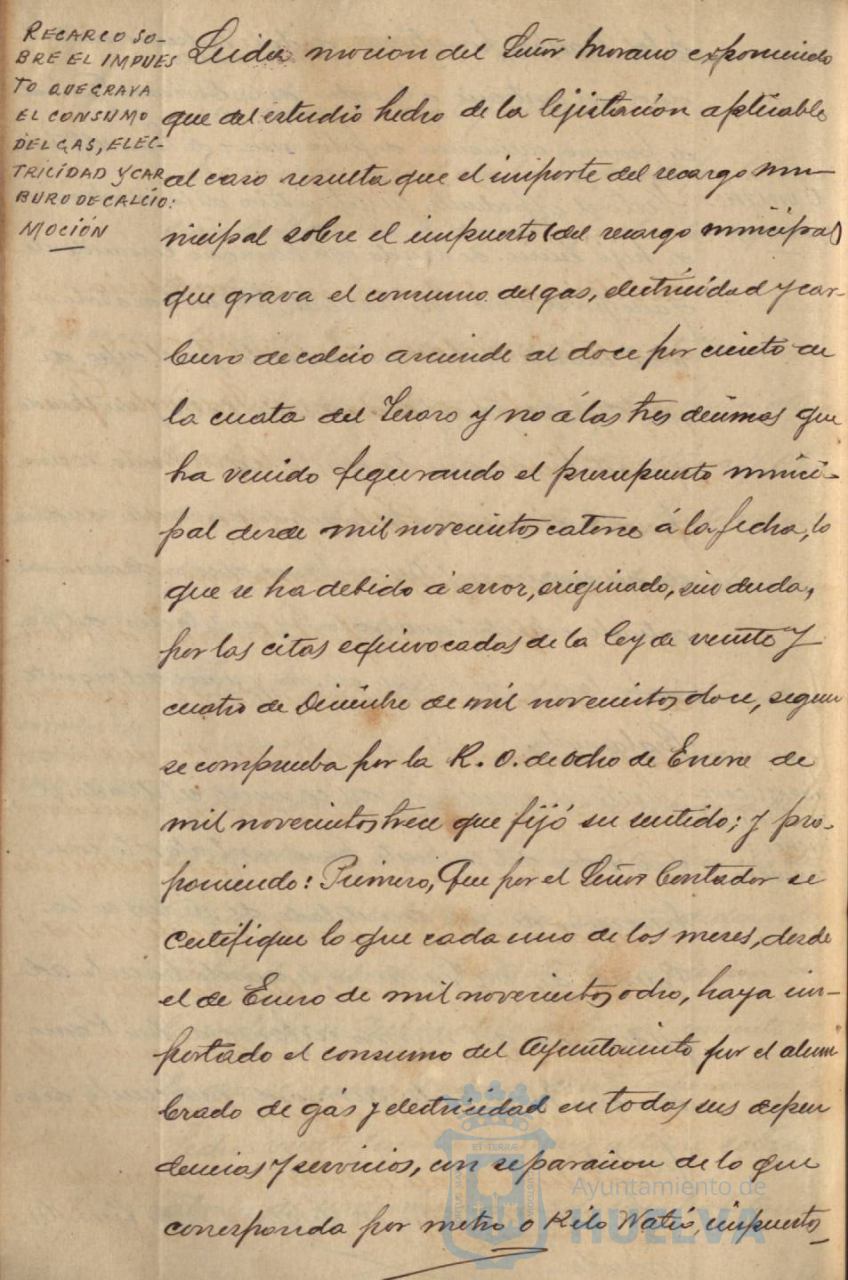 RECARGO SO-
BRE EL IMPUES
TO QUE GRAVA
EL CONSUMO
DEL GAS, ELEC-
TRICIDAD Y CAR
BURO DE CALCIO:
MOCIÓN
Leida mocion del Señor Morano exponiendo
que del estudio hecho de la lejislación aplicable
al caso resulta que el importe del recargo mu-
nicipal sobre el impuesto (del recargo municipal)
que grava el consumo del gas, electricidad y car-
buro de calcio asciende al doce por ciento de
la cuota del Tesoro y no á las tres decimas que
ha venido figurando el presupuesto munici-
pal desde mil novecientos catorce á la fecha, lo
que se ha debido á error, originado, sin duda,
por las citas equivocadas de la ley de veinte y
cuatro de Diciembre de mil novecientos doce, segun
se comprueba por la R. O. de ocho de Enero de
mil novecientos trece que fijó su sentido; y pro-
poniendo: Primero, Que por el Señor Contador se
certifique lo que cada uno de los meses, desde
el de Enero de mil novecientos ocho, haya im-
portado el consumo del Ayuntamiento por el alum
brado de gás y electricidad en todas sus depen
dencias y servicios, con separacion de lo que
corresponda por metro o Kilo Watio, impuestos
Ayuntamiento de
HUELVA